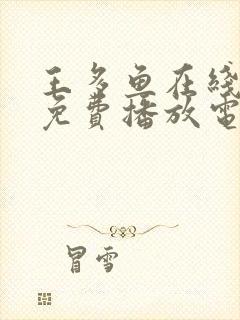 王多鱼在线
免費播放電
冒雪